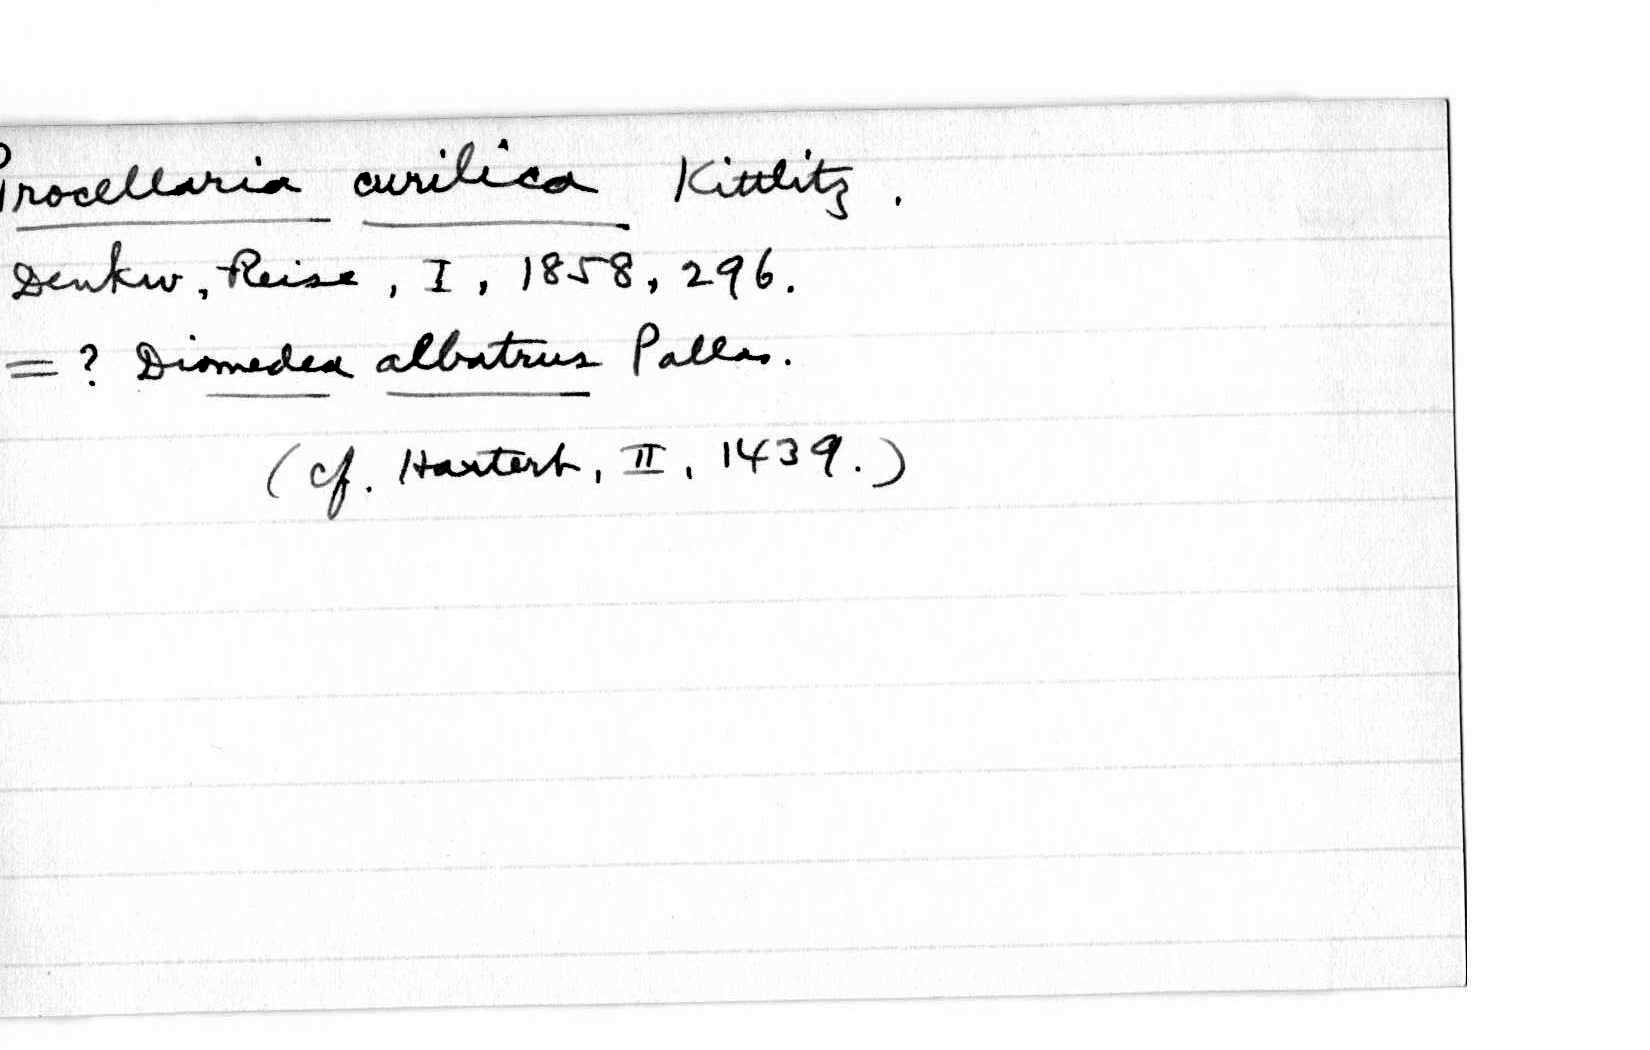 Procellaria curilica Kittlitz.
Denkw, Reise, I, 1858, 296.
= ? Diomedea albatrus Pallas.
(cf. Hartert, II, 1439.)